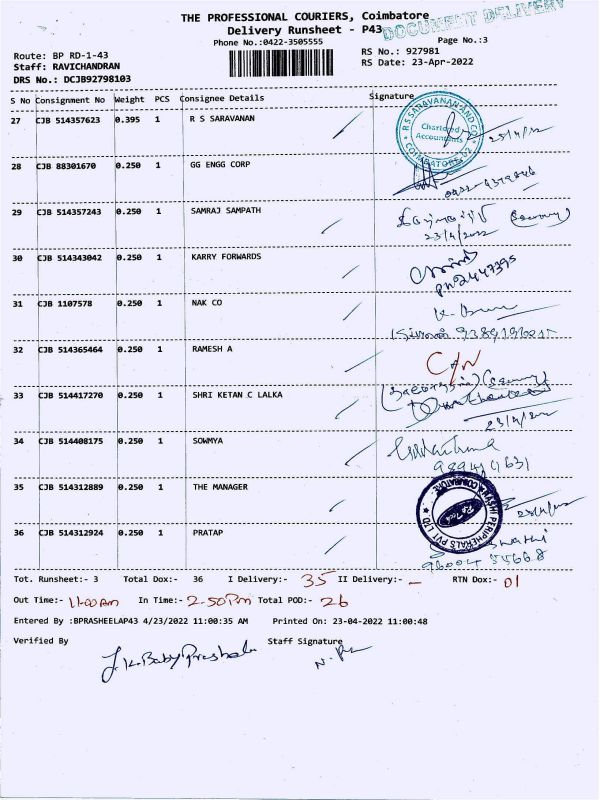 THE PROFESSIONAL COURIERS, Coimbatore
Delivery Runsheet - P43
DOCUMENT DELIVERY
Phone No.:0422-3505555
Page No.:3
Route: BP RD-1-43
RS No.: 927981
Staff: RAVICHANDRAN
RS Date: 23-Apr-2022
DRS No.: DCJB92798103
S No Consignment No Weight PCS Consignee Details Signature
27 CJB 514357623 0.395 1 R S SARAVANAN
R S SARAVANAN AND CO
Chartered
Accountants
COIMBATORE
28 CJB 88301670 0.250 1 GG ENGG CORP
29 CJB 514357243 0.250 1 SAMRAJ SAMPATH
23/4/2022
30 CJB 514343042 0.250 1 KARRY FORWARDS
PH 2447395
31 CJB 1107578 0.250 1 NAK CO
32 CJB 514365464 0.250 1 RAMESH A
C/N
33 CJB 514417270 0.250 1 SHRI KETAN C LALKA
34 CJB 514408175 0.250 1 SOWMYA
35 CJB 514312889 0.250 1 THE MANAGER
PERIPHERALS PVT LTD
36 CJB 514312924 0.250 1 PRATAP
Swathi
Tot. Runsheet:- 3 Total Dox:- 36 I Delivery:- 35 II Delivery:- - RTN Dox:- 01
Out Time:- 11:00 Am In Time:- 2.50 Pm Total POD:- 26
Entered By :BPRASHEELAP43 4/23/2022 11:00:35 AM Printed On: 23-04-2022 11:00:48
Verified By Staff Signature
J.K. Baby Prasheela